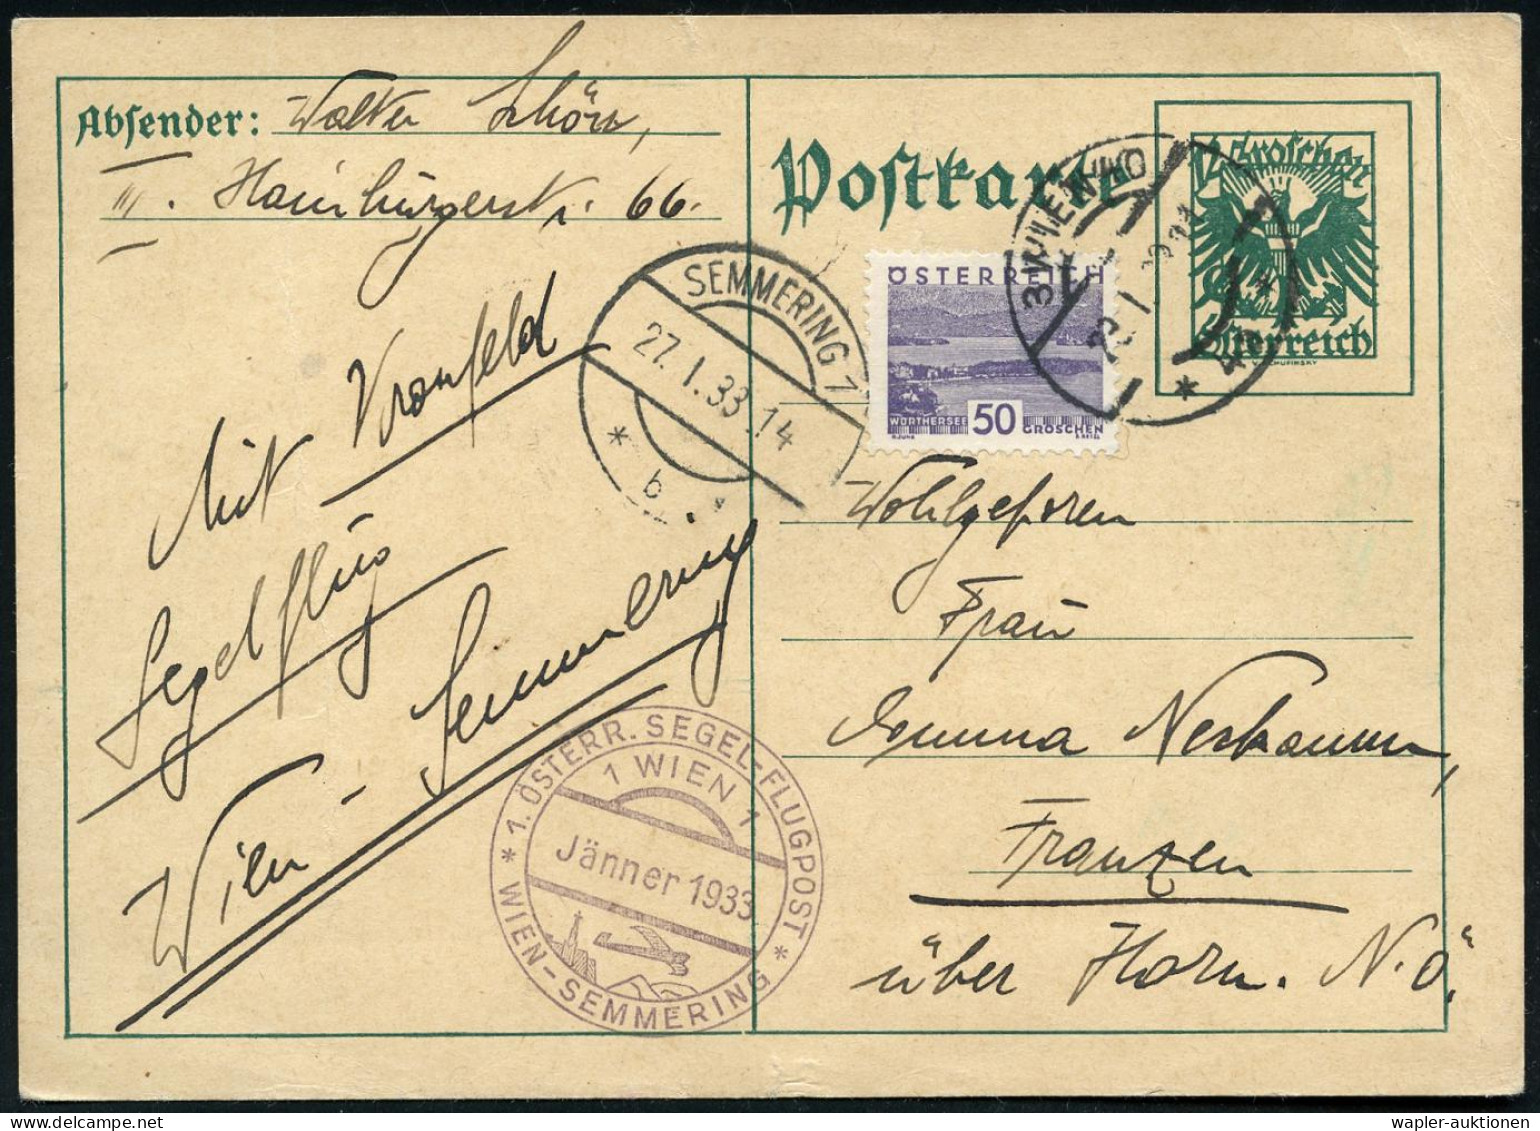 Absender: Walter Schön,
III. Hainburgerstr. 66.
Mit Kronfeld
Segelflug
Wien - Semmering
SEMMERING 1
27.I.33.14
* b *
1. ÖSTERR. SEGEL-FLUGPOST
* WIEN-SEMMERING *
1 WIEN 1
Jänner 1933
Postkarte
12 Groschen
Österreich
3 WIEN 40
ÖSTERREICH
WÖRTHERSEE 50 GROSCHEN
Wohlgeboren
Frau
Emma
Franzen
über Horn. N.Ö.
wapler-auktionen